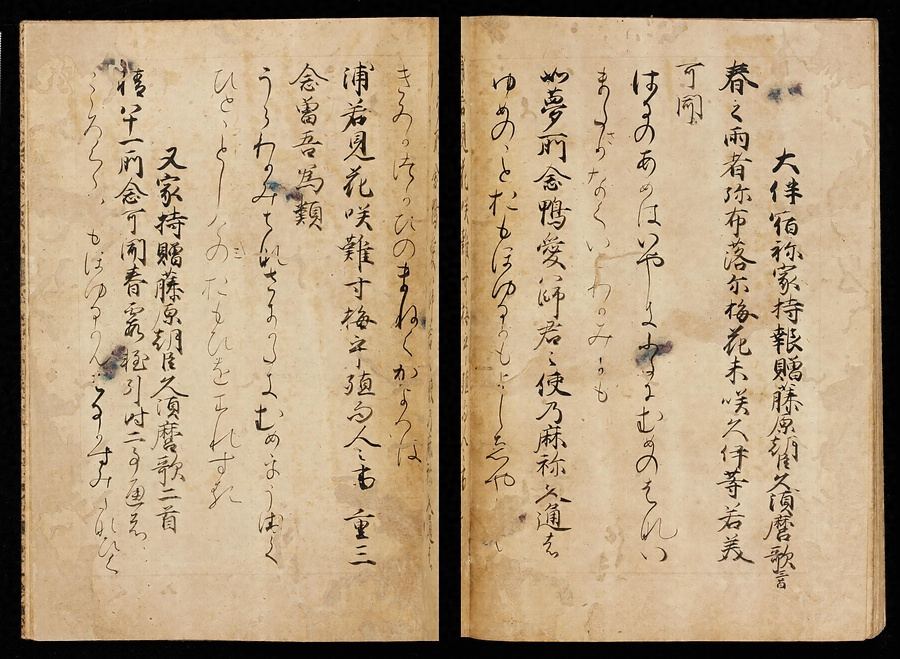 大伴宿祢家持報贈藤原朝臣久須麿歌三首
春之雨者弥布落尓梅花未咲久伊等若美
可聞
はるのあめはいやしきふるにむめのはない
またさかなくいとわかみかも
如夢所念鴨愛八師君之使乃麻祢久通者
ゆめのことおもほゆるかもはしきやし
きみかつかひのまねくかよへは
浦若見花咲難寸梅乎殖而人之事重三
念曽吾為類
うらわかみはなさきかたきむめをうゑて
ひとのことしけみおもひそわれする
又家持贈藤原朝臣久須麿歌二首
情八十一所念可聞春霞軽引時二事通者
こゝろくゝおもほゆるかもはるかすみたなひく